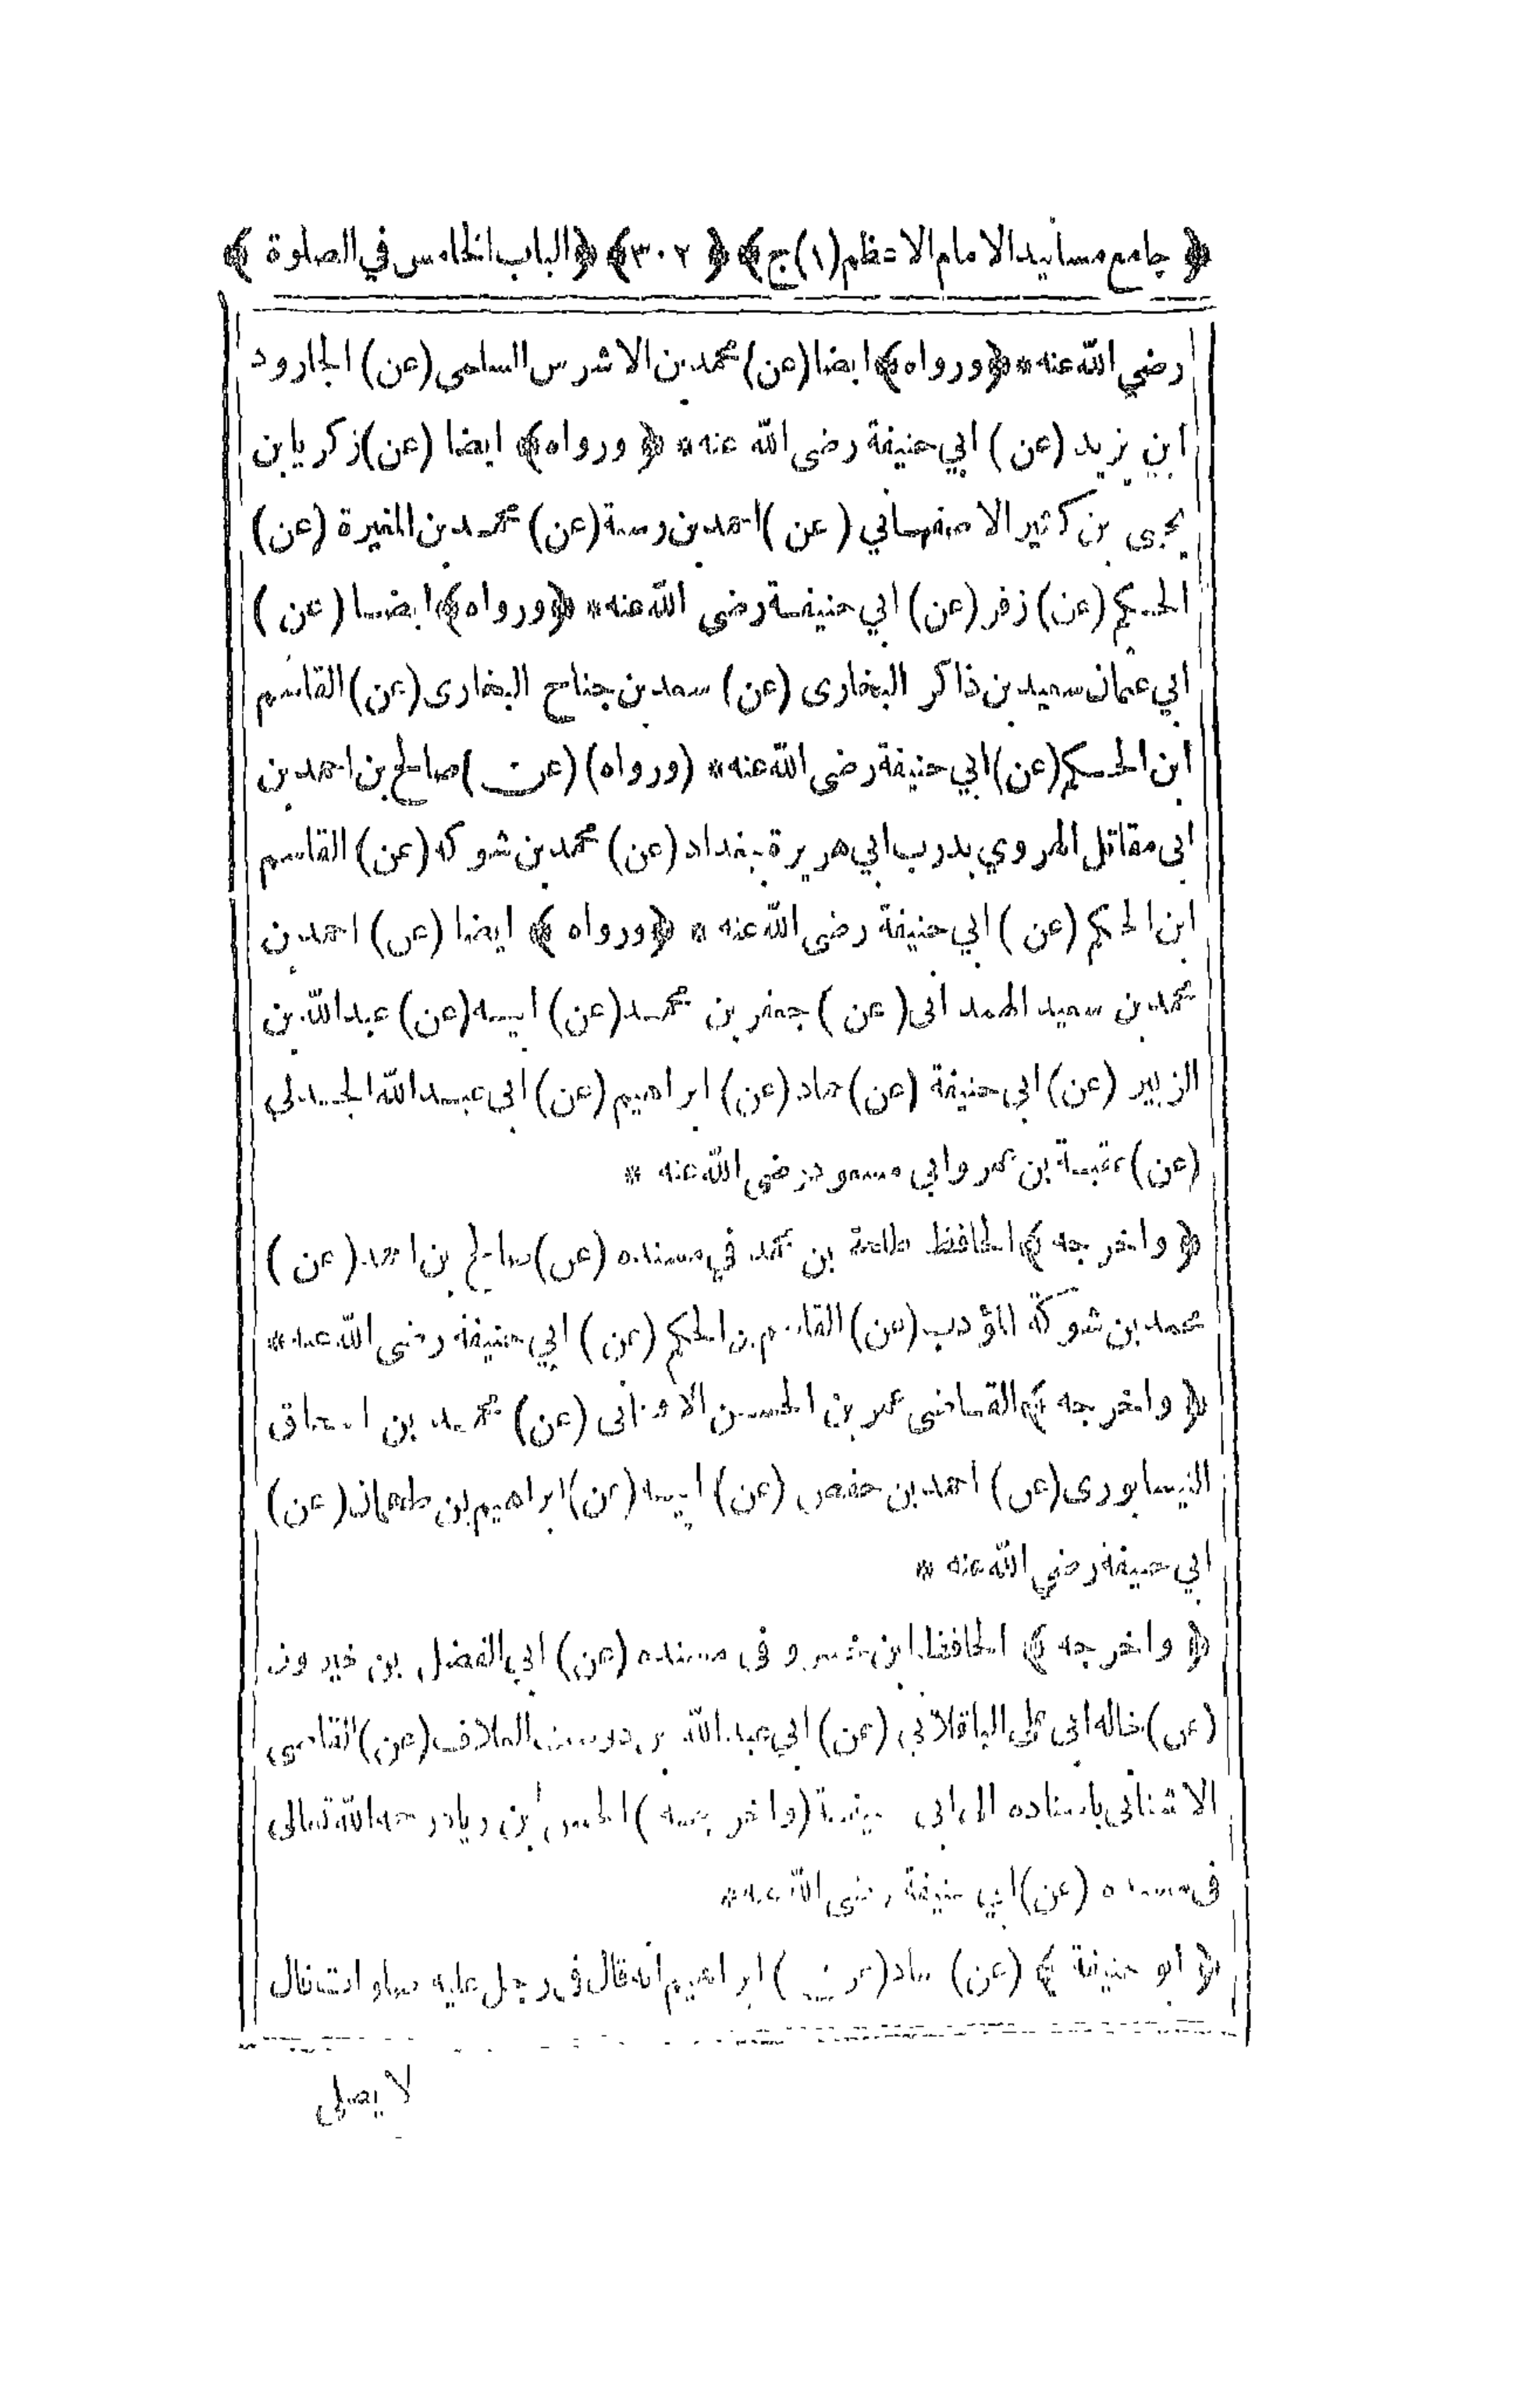 ﴿ جامع مسانيد الامام الاعظم (١) ج ﴾ ﴿ ٣٠٢ ﴾ ﴿ الباب الخامس في الصلوة ﴾
رضي الله عنه * ﴿ ورواه ﴾ ايضا (عن) محمد بن الاشرس السلمى (عن) الجارود
ابن يزيد (عن) ابي حنيفة رضى الله عنه * ﴿ ورواه ﴾ ايضا (عن) زكريا بن
يحيى بن كثير الاصفهاني (عن) احمد بن رستة (عن) محمد بن المغيرة (عن)
الحكم (عن) زفر (عن) ابي حنيفة رضى الله عنه * ﴿ ورواه ﴾ ايضا (عن)
ابي عثمان سعيد بن ذاكر البخارى (عن) سعد بن جناح البخارى (عن) القاسم
ابن الحكم (عن) ابي حنيفة رضى الله عنه * (ورواه) (عن) صالح بن احمد بن
ابى مقاتل الهروي بدرب ابي هريرة ببغداد (عن) محمد بن شوكه (عن) القاسم
ابن الحكم (عن) ابي حنيفة رضى الله عنه * ﴿ ورواه ﴾ ايضا (عن) احمد بن
محمد بن سعيد الهمدانى (عن) جعفر بن محمد (عن) ابيه (عن) عبد الله بن
الزبير (عن) ابى حنيفة (عن) حماد (عن) ابراهيم (عن) ابى عبد الله الجدلي
(عن) عقبة بن عمرو ابي مسعود رضى الله عنه *
﴿ واخرجه ﴾ الحافظ طلحة بن محمد في مسنده (عن) صالح بن احمد (عن)
محمد بن شوكة المؤدب (عن) القاسم بن الحكم (عن) ابي حنيفة رضى الله عنه *
﴿ واخرجه ﴾ القاضى عمر بن الحسن الاشنانى (عن) محمد بن اسحاق
النيسابورى (عن) احمد بن حفص (عن) ابيه (عن) ابراهيم بن طهمان (عن)
ابي حنيفة رضي الله عنه *
﴿ واخرجه ﴾ الحافظ ابن خسرو فى مسنده (عن) ابي الفضل بن خيرون
(عن) خاله ابى على الباقلاني (عن) ابي عبد الله بن دوست العلاف (عن) القاضى
الاشنانى باسناده الى ابى حنيفة (واخرجه) الحسن بن زياد رحمه الله تعالى
فى مسنده (عن) ابي حنيفة رضى الله عنه *
﴿ ابو حنيفة ﴾ (عن) حماد (عن) ابراهيم انه قال فى رجل عليه صلوات قال
لا يصلى